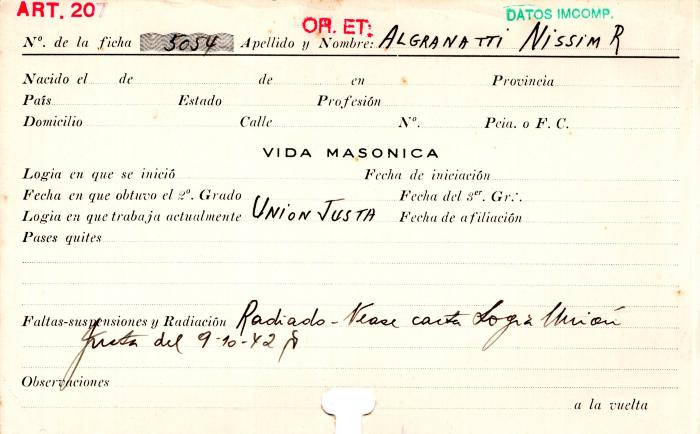 ART. 207
OR. ET:
DATOS IMCOMP.
Nº. de la ficha 5054 Apellido y Nombre: ALGRANATTI NISSIM R
Nacido el de de en Provincia
País Estado Profesión
Domicilio Calle Nº. Pcia. o F. C.
VIDA MASONICA
Logia en que se inició Fecha de iniciación
Fecha en que obtuvo el 2º. Grado Fecha del 3er. Gr∴
Logia en que trabaja actualmente UNION JUSTA Fecha de afiliación
Pases quites
Faltas-suspensiones y Radiación Radiado - Vease carta Logia Unión
Justa del 9-10-42
Observaciones
a la vuelta